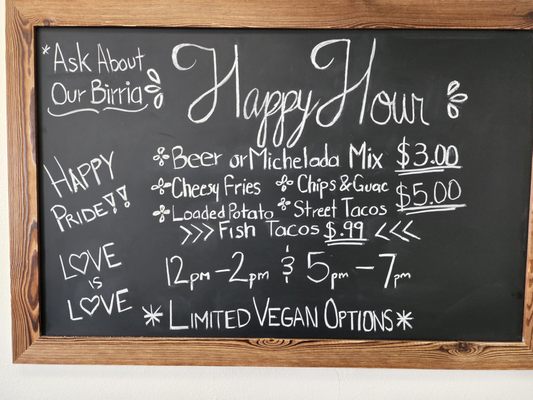 *Ask About
Our Birria
Happy Hour
HAPPY
PRIDE!!
LOVE
IS
LOVE
Beer or Michelada Mix $3.00
Cheesy Fries Chips & Guac $5.00
Loaded Potato Street Tacos
>>> Fish Tacos $.99 <<<
12pm - 2pm & 5pm - 7pm
*LIMITED VEGAN OPTIONS*